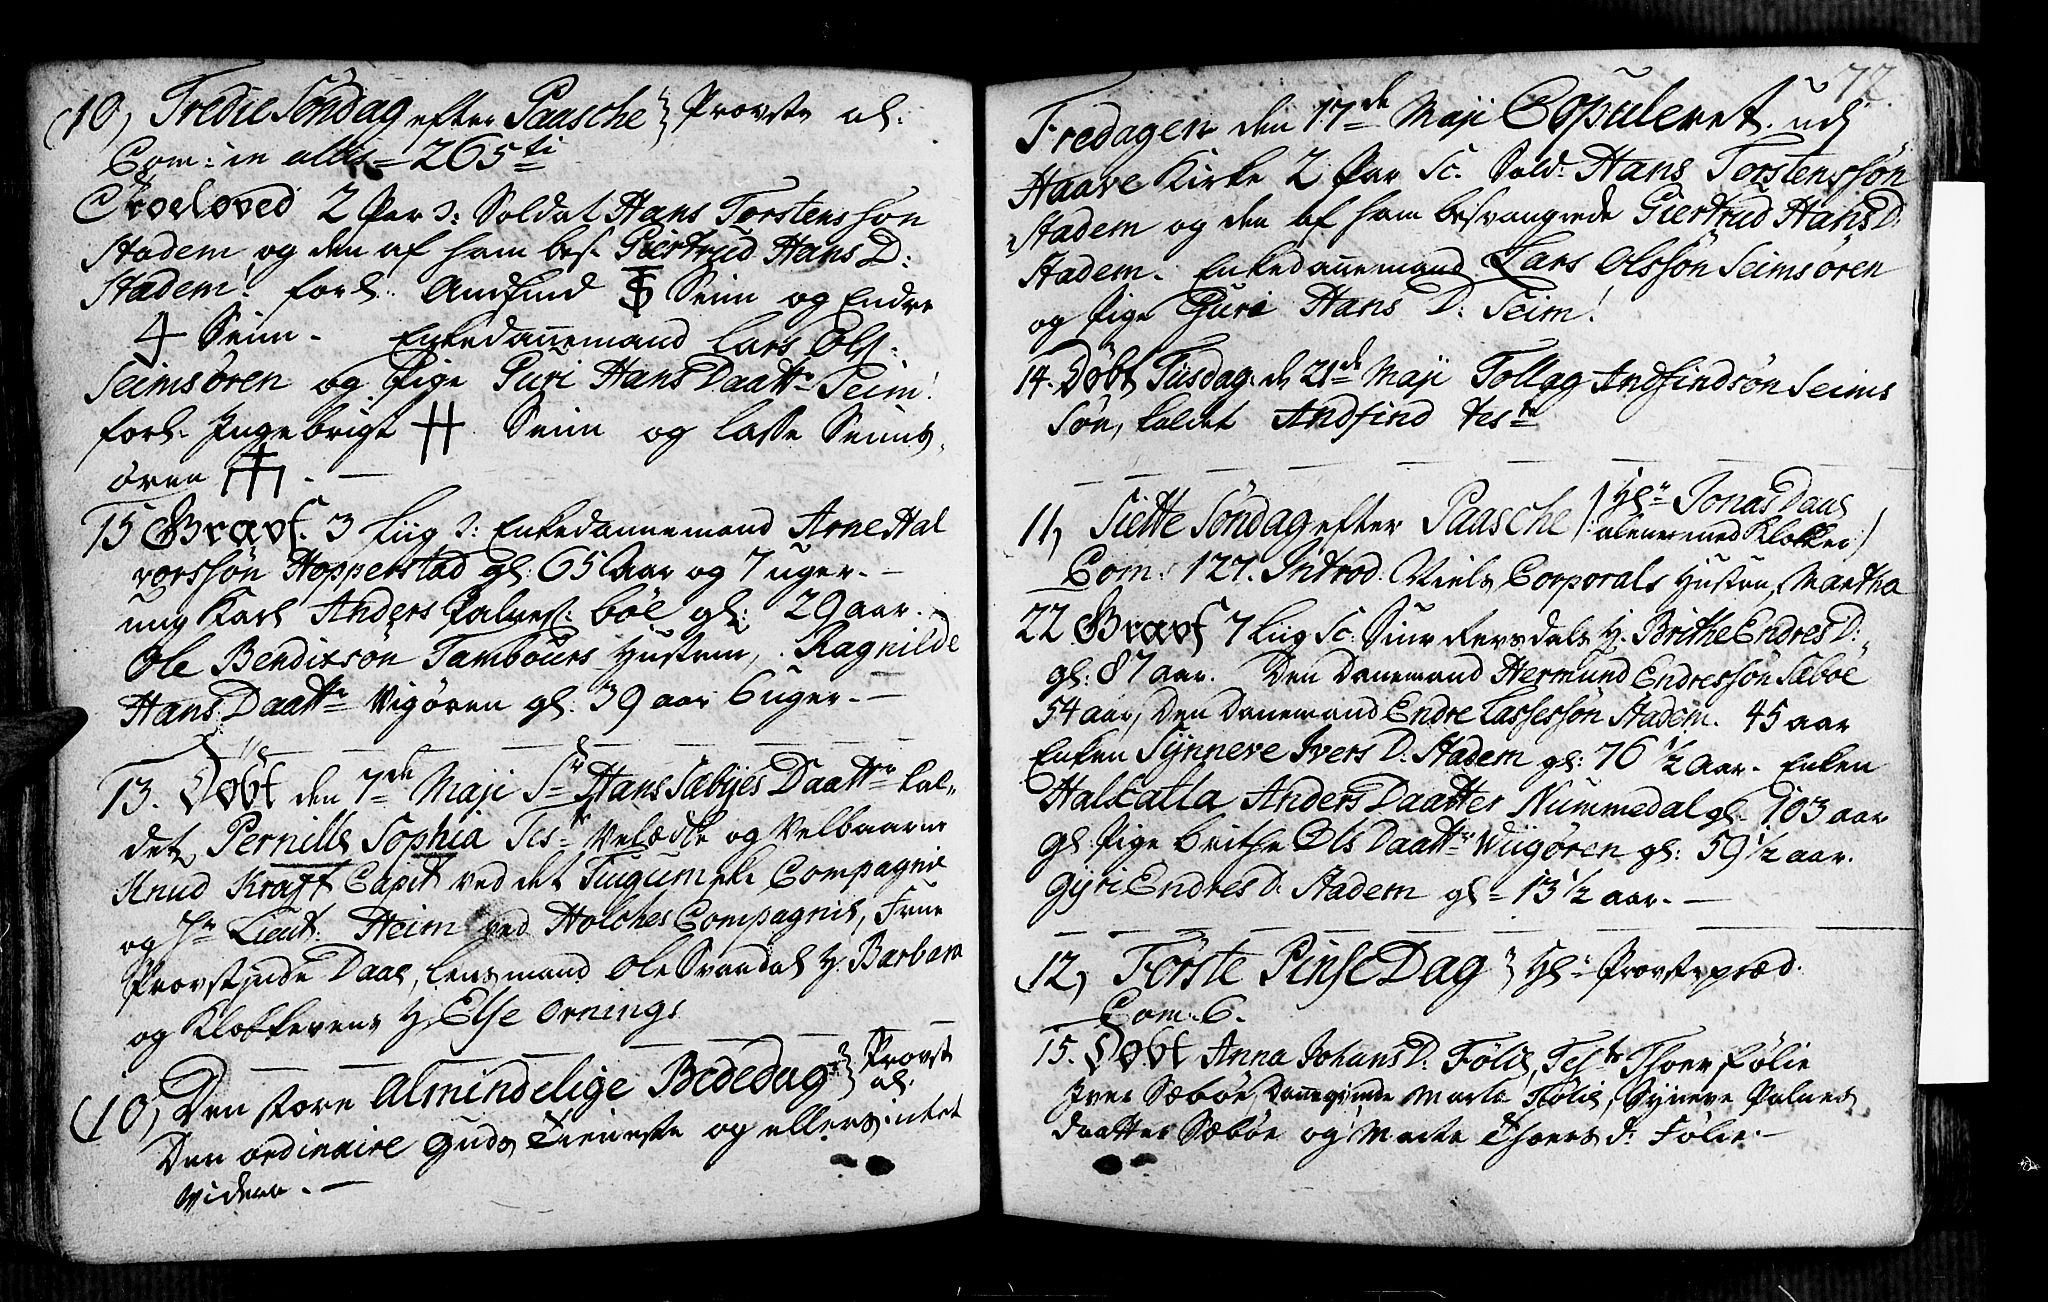 (10) Tredie Søndag efter Paasche Provste al:
Com: in alles = 265 ti
Troeloved 2 Par Soldat Hans Torstenssøn
Stadem og den af ham bes. Giertrud Hans D:
Stadem! forl: Andfind Seim og Endre
Seim. Enkedañemand Lars Ols:
Seimsøren og Pige Guri Hans Daattr Seim!
forl. Ingebrigt Seim og Lasse Seims
øren
15 Gravf. 3 Liig Enkedannemand Arne Hal
vorssøn Hopperstad gl: 65 Aar og 7 uger.
ung Karl Anders Palnes: bøe gl: 29 aar.
Ole Bendixsøn Tambours Hustru, Ragnilde
Hans Daattr Vigøren gl. 39 aar 6 uger.
13. Døbt den 7de Maji Sr Hans Sæbyes Daattr kal
det Pernille Sophia Tes Velædle og Velbaarne
Knud Krafft Capit ved det Compagnie
og Hr Lieut: Heim ved Holches Compagnie, Frue
Provstinde Daae, Lensmand Ole Svendal H. Barbara
og Klokkerens H. Else Ornings
(10) Den store Almindelige Bededag Provst
al.
Den ordinaire Guds Tieneste og ellers intet
videre.
77.
Fredagen den 17de Maji Copuleret udi
Haave Kirke 2 Par Sc. Sold. Hans Torstenssøn
Stadem og den af ham besvangrede Giertrud Hans D.
Stadem. Enkedañemand Lars Olssøn Seimsøren
og Pige Guri Hans D: Seim!
14. Døbt Tiisdag d 21de Maji Tollag Andfindsøn Seims
Søn, kaldet Andfind Tes
11) Siette Søndag efter Paasche (Hr Jonas Daae
alene med Klokker)
Com: 127. Introd: Niels Corporals Hustru, Martha
22 Gravf 7 Liig Sc: Siur H. Brithe Endres D:
gl: 87 aar. Den Danemand Hermund Endressøn Sæbøe
54 aar, Den Danemand Endre Lassessøn Stadem. 45 aar
Enken Synneve Ivers D: Stadem gl: 76 1/2 Aar. Enken
Halkatla Anders Daatter Nummedal gl. 103 aar
gl. Pige Brithe Ols Daattr Wiigøren gl: 59 1/2 aar.
Gyri Endres D. Stadem gl = 13 1/2 aar.
12) Første Pinse Dag Hr Provst præd.
Com: 6.
15. Døbt Anna Johans D. Følie, Test Thoer Følie
Iver Sæbøe, Daneqvinde Marta Følie, Synneve Palnes
daatter Sæbøe og Marte Thoers d: Følie.